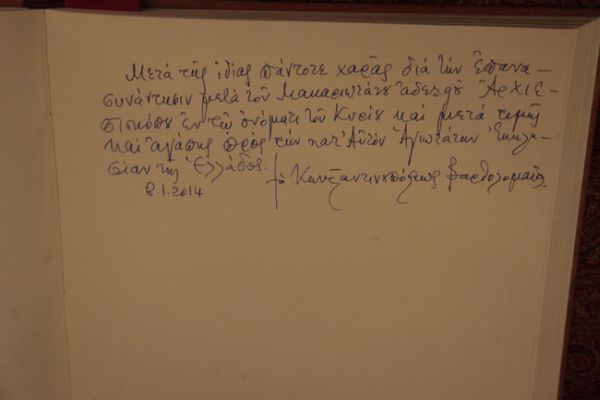 Μετά τῆς ἰδίας πάντοτε χαρᾶς διά τήν ἐπανα-
συνάντησιν μετά τοῦ Μακαριωτάτου ἀδελφοῦ Ἀρχιε-
πισκόπου ἐν τῷ ὀνόματι τοῦ Κυρίου καί μετά τιμῆς
καί ἀγάπης πρός τήν κατ' Αὐτόν Ἁγιωτάτην Ἐκκλη-
σίαν τῆς Ἑλλάδος.
† ὁ Κωνσταντινουπόλεως Βαρθολομαῖος
8.1.2014